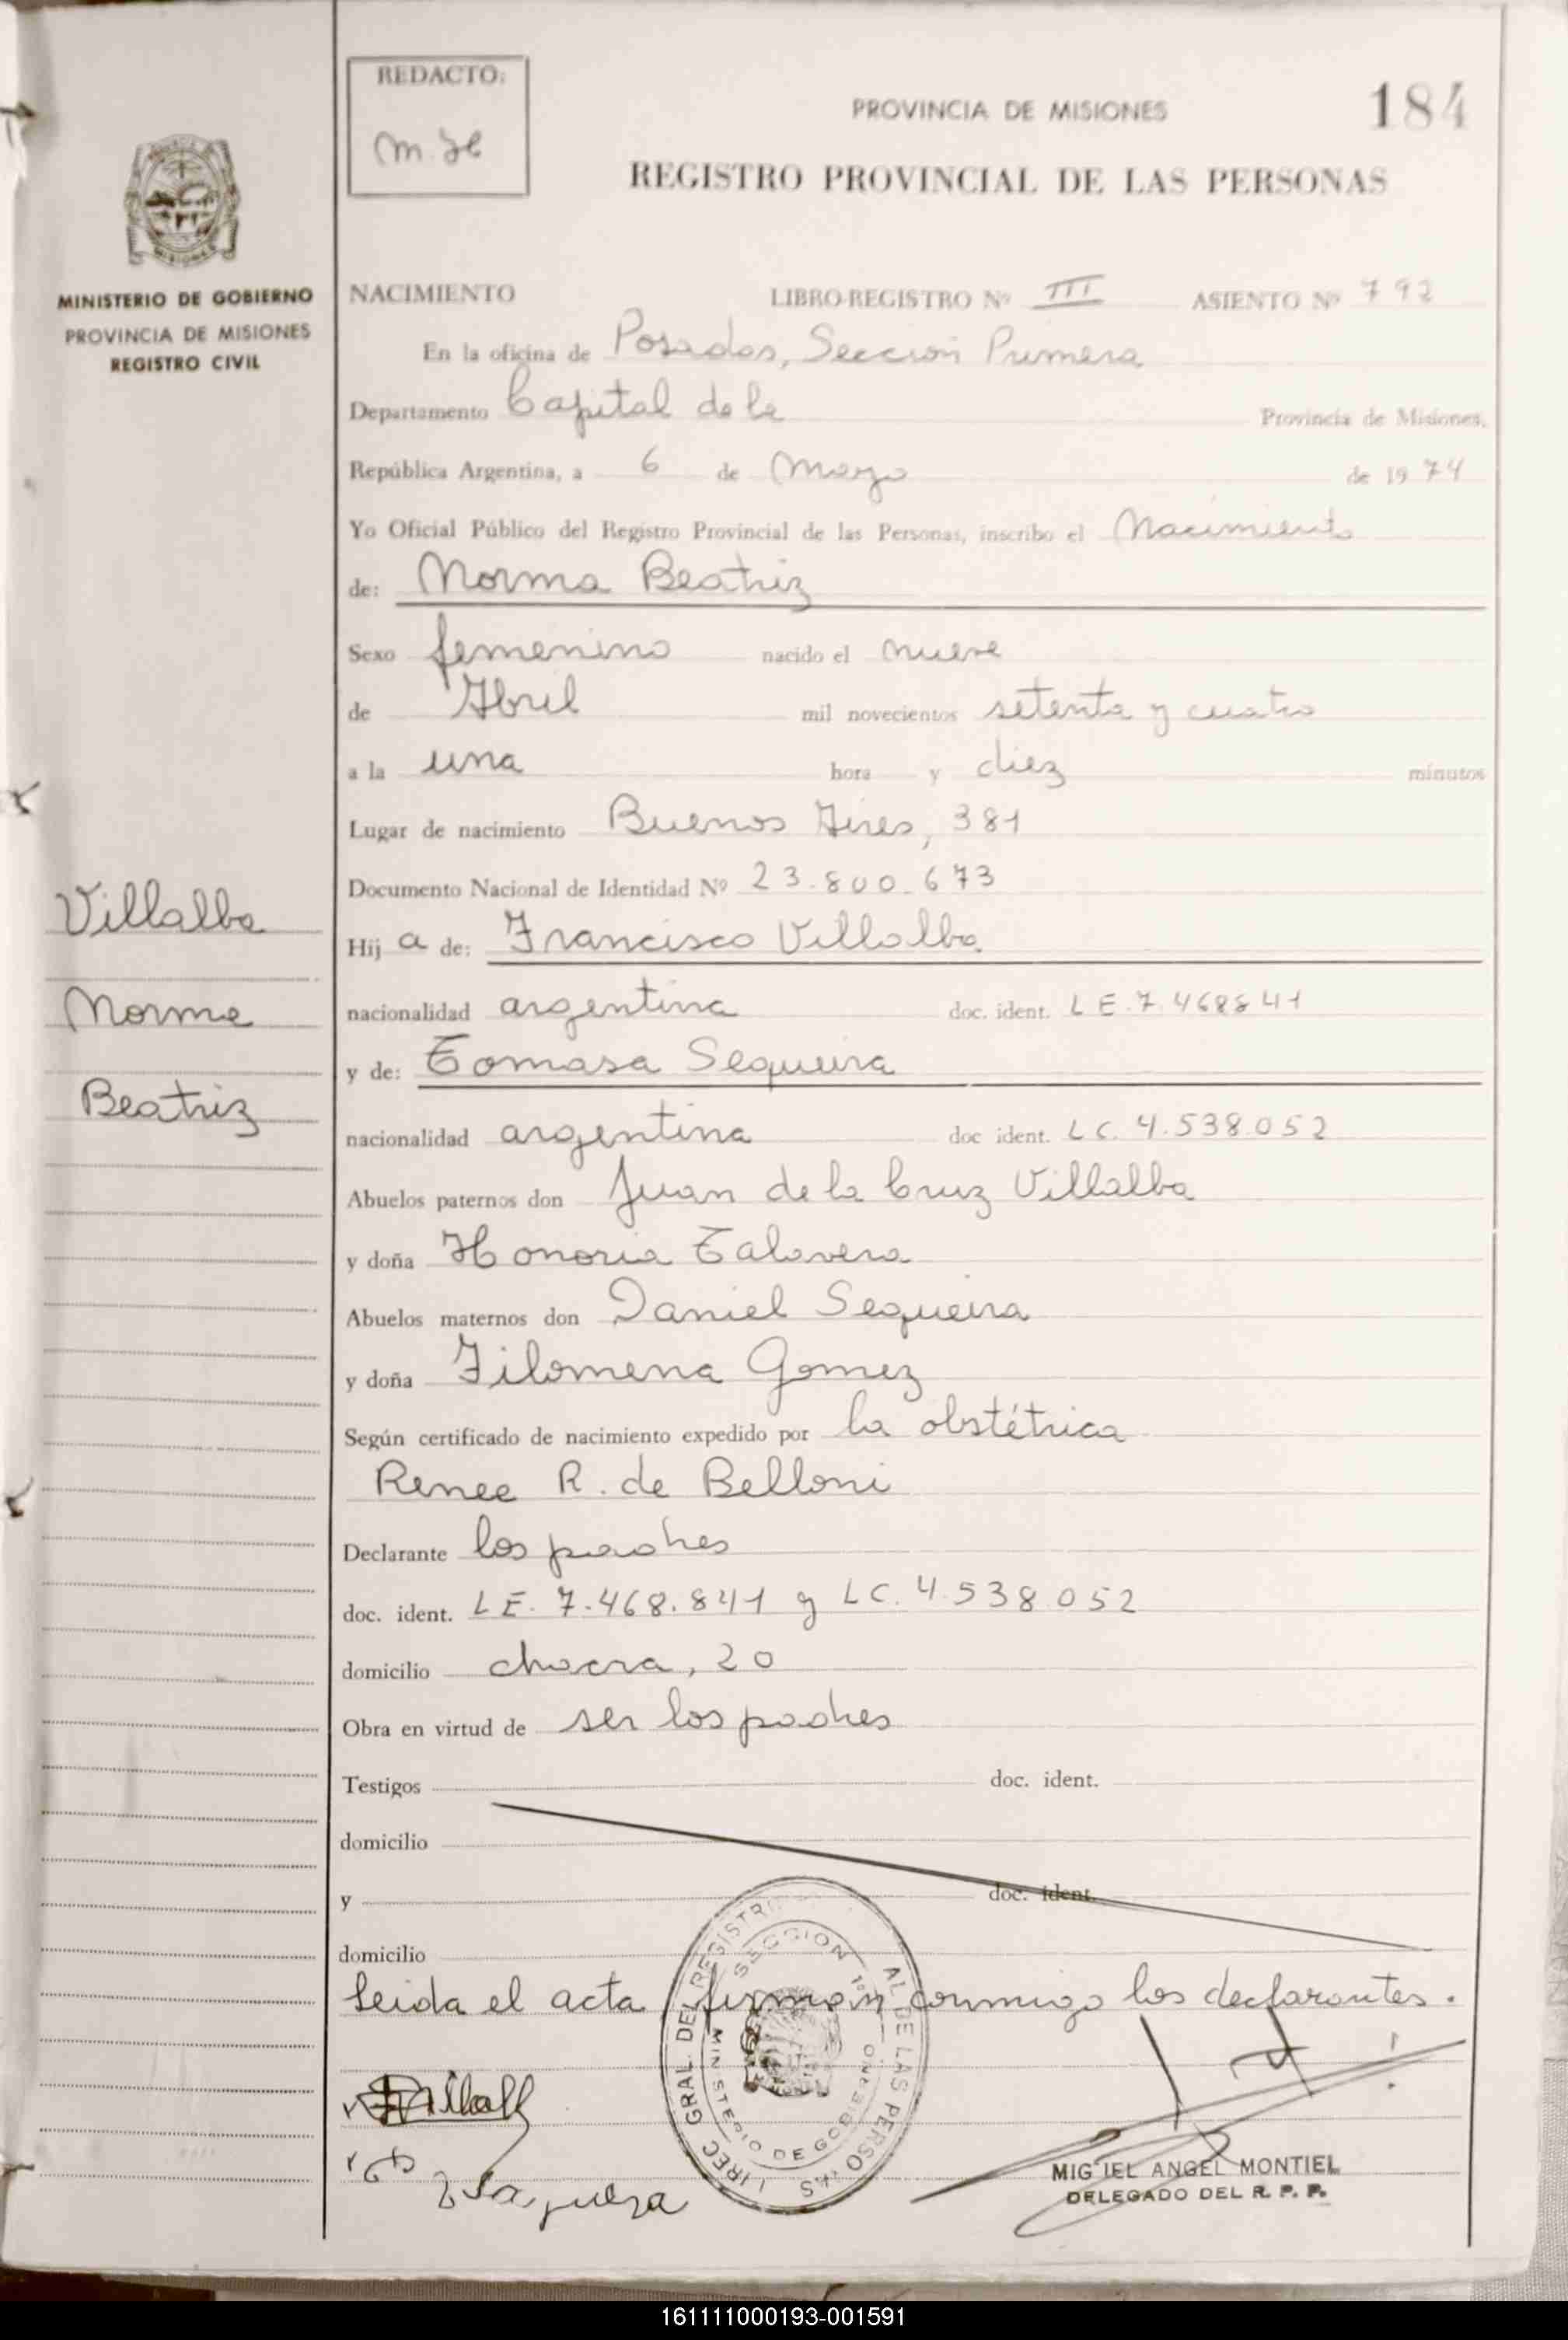 REDACTO:
PROVINCIA DE MISIONES
184
REGISTRO PROVINCIAL DE LAS PERSONAS
MINISTERIO DE GOBIERNO
PROVINCIA DE MISIONES
REGISTRO CIVIL
NACIMIENTO LIBRO-REGISTRO Nº III ASIENTO Nº 792
En la oficina de Posadas, Sección Primera
Departamento Capital de la Provincia de Misiones,
República Argentina, a 6 de Mayo de 1974
Yo Oficial Público del Registro Provincial de las Personas, inscribo el Nacimiento
de: Norma Beatriz
Sexo femenino nacido el nueve
de Abril mil novecientos setenta y cuatro
a la una hora y diez minutos
Lugar de nacimiento Buenos Aires, 381
Documento Nacional de Identidad Nº 23.800.673
Villalba
Norma
Beatriz
Hij a de: Francisco Villalba
nacionalidad argentina doc. ident. LE.7.468841
y de: Tomasa Sequeira
nacionalidad argentina doc ident. LC. 4.538.052
Abuelos paternos don Juan de la Cruz Villalba
y doña Honoria Talavera
Abuelos maternos don Daniel Sequeira
y doña Filomena Gomez
Según certificado de nacimiento expedido por la obstétrica
Renee R. de Belloni
Declarante los padres
doc. ident. LE. 7.468.841 y LC. 4.538.052
domicilio chacra, 20
Obra en virtud de ser los padres
Testigos doc. ident.
domicilio
y doc. ident.
domicilio
Leida el acta firman conmigo los declarantes.
SECCION 1º
MINISTERIO DE GOBIERNO
MIGUEL ANGEL MONTIEL
DELEGADO DEL R. P. P.
161111000193-001591